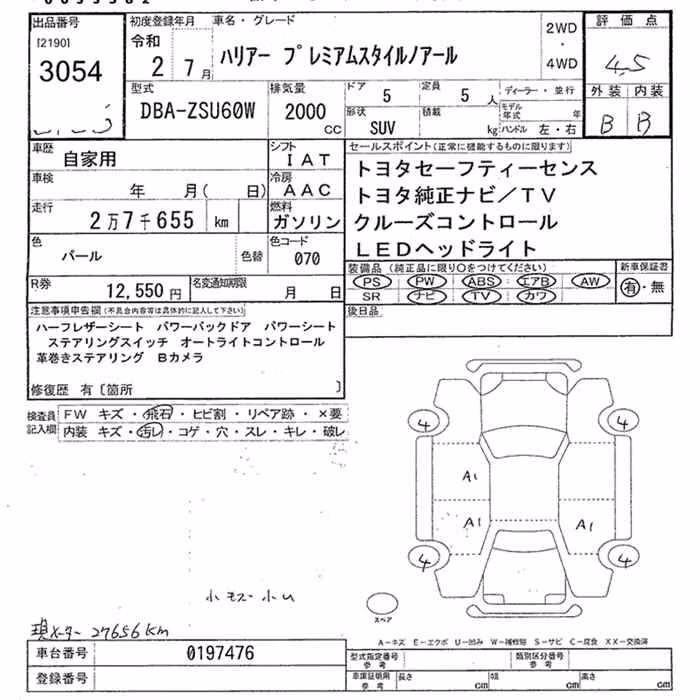 出品番号 初度登録年月 車名・グレード 2WD・4WD 評価点
[2190] 令和
3054 2 7月 ハリアー プレミアムスタイルノアール 4.5
型式 排気量 ドア 定員 ディーラー・並行 外装 内装
DBA-ZSU60W 2000 5 5人 モデル年式 年 B B
CC 形状 積載
SUV kg ハンドル 左・右
車歴 自家用 シフト IAT セールスポイント(正常に機能するものに限ります)
車検 年 月( 日) 冷房 AAC トヨタセーフティーセンス
トヨタ純正ナビ/TV
走行 2万7千655 km 燃料 ガソリン クルーズコントロール
LEDヘッドライト
色 パール 色替 色コード 070 装備品(純正品に限り○をつけてください) 新車保証書
PS PW ABS エアB AW 有・無
R券 12,550円 名変通知期限 月 日 SR ナビ TV カワ
注意事項申告欄(不具合内容等は具体的に記入して下さい) 後日品
ハーフレザーシート パワーバックドア パワーシート
ステアリングスイッチ オートライトコントロール
革巻きステアリング Bカメラ
修復歴 有〔箇所 〕
検査員 FW キズ・飛石・ヒビ割・リペア跡・×要
記入欄 内装 キズ・汚レ・コゲ・穴・スレ・キレ・破レ
4 4
A1
A1 A1
4 4
スペア
現メーター 27656km
A-キズ E-エクボ U-凹み W-補修跡 S-サビ C-腐食 XX-交換済
車台番号 0197476 型式指定番号 参考 類別区分番号 参考
登録番号 車庫証明用 参考 長さ cm 幅 cm 高さ cm